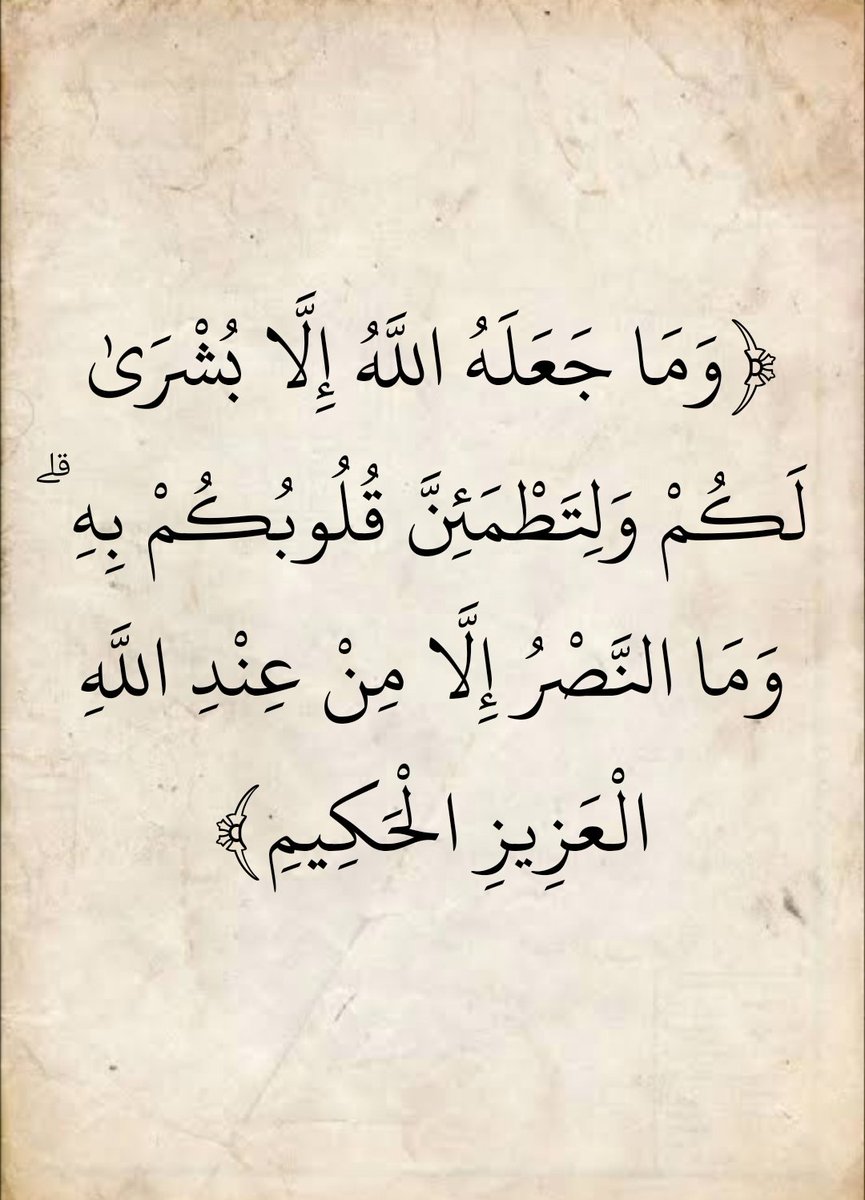 ﴿وَمَا جَعَلَهُ اللَّهُ إِلَّا بُشْرَىٰ
لَكُمْ وَلِتَطْمَئِنَّ قُلُوبُكُمْ بِهِ ۗ
وَمَا النَّصْرُ إِلَّا مِنْ عِنْدِ اللَّهِ
الْعَزِيزِ الْحَكِيمِ﴾